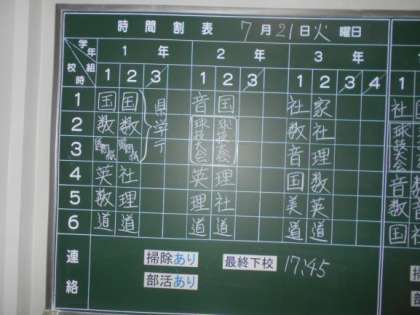 時間割表 7月21日火曜日
学年 組 校時 1年 2年 3年
1 2 3 1 2 3 1 2 3 4
1 国 国 音 国 社 家 社
2 数 数 球技大会 球技大会 数 社
3 音 理
県学テ
4 英 社 英 理 国 数
5 数 理 理 社 美 英 数
6 道 道 道 道 道 道 国
連絡 掃除あり 最終下校 17:45
部活あり